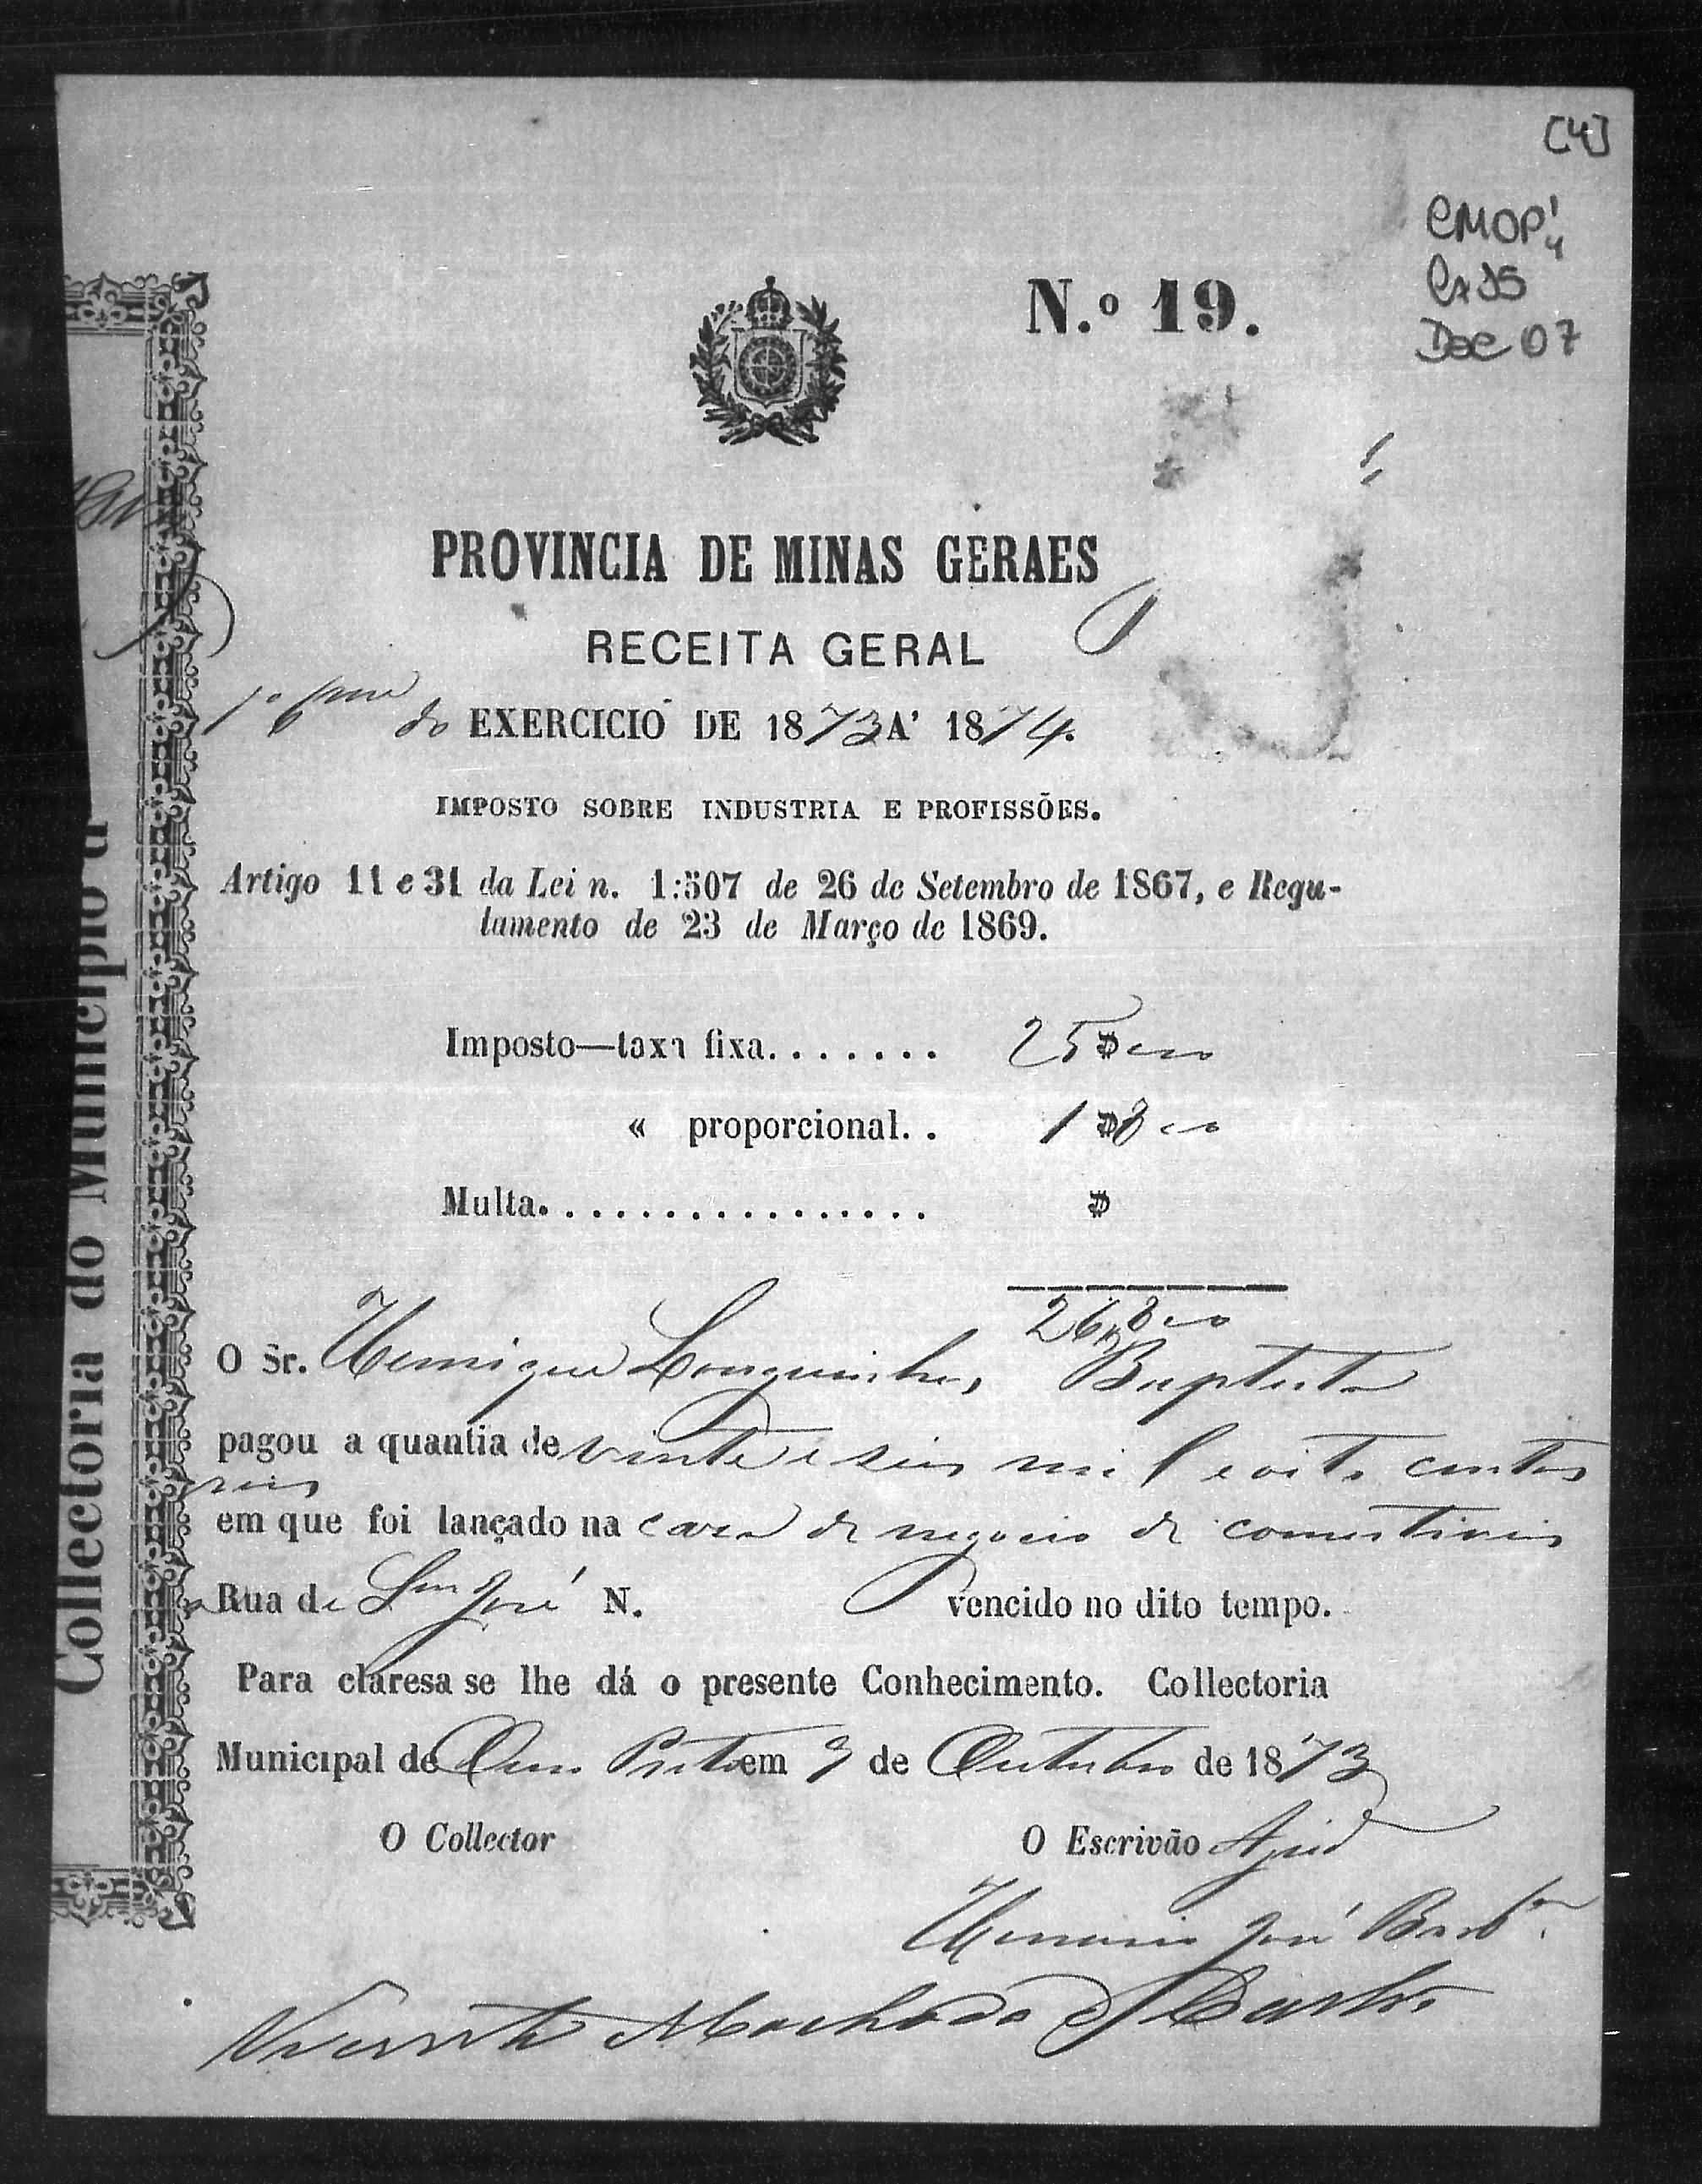 [4]
CMOP 1/4
Cx 35
Doc 07
N.º 19.
PROVINCIA DE MINAS GERAES
RECEITA GERAL
1º 6tre do EXERCICIO DE 1873 A' 1874.
IMPOSTO SOBRE INDUSTRIA E PROFISSÕES.
Artigo 11 e 31 da Lei n. 1:507 de 26 de Setembro de 1867, e Regu-
lamento de 23 de Março de 1869.
Imposto—taxa fixa....... 25$000
« proporcional.. 1$800
Multa................ $
26$800
O Sr. Henrique Baptista
pagou a quantia de vinte e seis mil e oito centos
reis
em que foi lançado na casa de negocio de comestiveis
Rua de Sam José N. vencido no dito tempo.
Para claresa se lhe dá o presente Conhecimento. Collectoria
Municipal de Ouro Preto em 9 de Outubro de 1873
O Collector O Escrivão Ajud
José Barb.
Vicente Machado de Castro
Collectoria do Municipio d